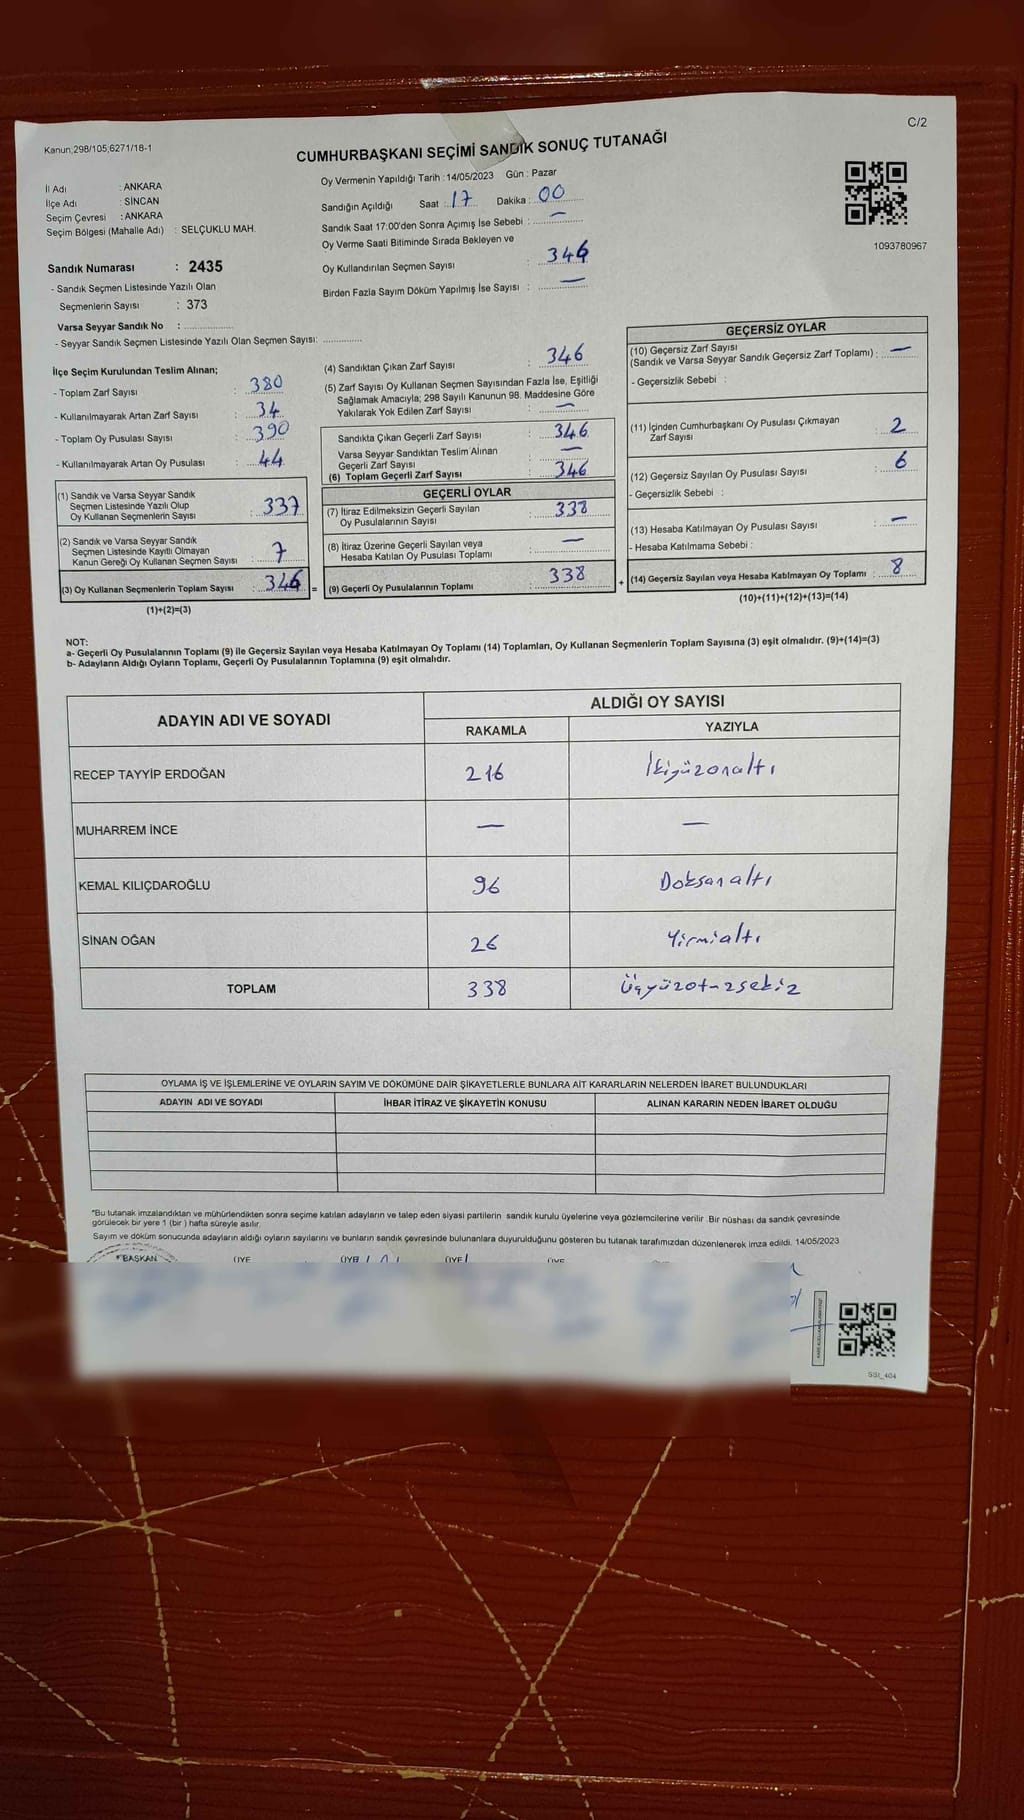 C/2
Kanun,298/105;6271/18-1
CUMHURBAŞKANI SEÇİMİ SANDIK SONUÇ TUTANAĞI
İl Adı : ANKARA
İlçe Adı : SİNCAN
Seçim Çevresi : ANKARA
Seçim Bölgesi (Mahalle Adı) : SELÇUKLU MAH.
Sandık Numarası : 2435
- Sandık Seçmen Listesinde Yazılı Olan
Seçmenlerin Sayısı : 373
Varsa Seyyar Sandık No :
- Seyyar Sandık Seçmen Listesinde Yazılı Olan Seçmen Sayısı:
Oy Vermenin Yapıldığı Tarih :14/05/2023 Gün : Pazar
Sandığın Açıldığı Saat : 17 Dakika : 00
Sandık Saat 17:00'den Sonra Açımış İse Sebebi : —
Oy Verme Saati Bitiminde Sırada Bekleyen ve
Oy Kullandırılan Seçmen Sayısı : 346
Birden Fazla Sayım Döküm Yapılmış İse Sayısı : —
1093780967
İlçe Seçim Kurulundan Teslim Alınan;
- Toplam Zarf Sayısı : 380
- Kullanılmayarak Artan Zarf Sayısı : 34
- Toplam Oy Pusulası Sayısı : 390
- Kullanılmayarak Artan Oy Pusulası : 44
(1) Sandık ve Varsa Seyyar Sandık
Seçmen Listesinde Yazılı Olup
Oy Kullanan Seçmenlerin Sayısı : 337
(2) Sandık ve Varsa Seyyar Sandık
Seçmen Listesinde Kayıtlı Olmayan
Kanun Gereği Oy Kullanan Seçmen Sayısı : 7
(3) Oy Kullanan Seçmenlerin Toplam Sayısı : 346 =
(1)+(2)=(3)
(4) Sandıktan Çıkan Zarf Sayısı : 346
(5) Zarf Sayısı Oy Kullanan Seçmen Sayısından Fazla İse, Eşitliği
Sağlamak Amacıyla; 298 Sayılı Kanunun 98. Maddesine Göre
Yakılarak Yok Edilen Zarf Sayısı : —
Sandıkta Çıkan Geçerli Zarf Sayısı : 346
Varsa Seyyar Sandıktan Teslim Alınan
Geçerli Zarf Sayısı : —
(6) Toplam Geçerli Zarf Sayısı : 346
GEÇERLİ OYLAR
(7) İtiraz Edilmeksizin Geçerli Sayılan
Oy Pusulalarının Sayısı : 338
(8) İtiraz Üzerine Geçerli Sayılan veya
Hesaba Katılan Oy Pusulası Toplamı : —
(9) Geçerli Oy Pusulalarının Toplamı : 338 +
GEÇERSİZ OYLAR
(10) Geçersiz Zarf Sayısı
(Sandık ve Varsa Seyyar Sandık Geçersiz Zarf Toplamı) : —
- Geçersizlik Sebebi :
(11) İçinden Cumhurbaşkanı Oy Pusulası Çıkmayan
Zarf Sayısı : 2
(12) Geçersiz Sayılan Oy Pusulası Sayısı : 6
- Geçersizlik Sebebi :
(13) Hesaba Katılmayan Oy Pusulası Sayısı : —
- Hesaba Katılmama Sebebi :
(14) Geçersiz Sayılan veya Hesaba Katılmayan Oy Toplamı : 8
(10)+(11)+(12)+(13)=(14)
NOT:
a- Geçerli Oy Pusulalarının Toplamı (9) ile Geçersiz Sayılan veya Hesaba Katılmayan Oy Toplamı (14) Toplamları, Oy Kullanan Seçmenlerin Toplam Sayısına (3) eşit olmalıdır. (9)+(14)=(3)
b- Adayların Aldığı Oyların Toplamı, Geçerli Oy Pusulalarının Toplamına (9) eşit olmalıdır.
ADAYIN ADI VE SOYADI
ALDIĞI OY SAYISI
RAKAMLA YAZIYLA
RECEP TAYYİP ERDOĞAN 216 İkiyüzonaltı
MUHARREM İNCE — —
KEMAL KILIÇDAROĞLU 96 Doksanaltı
SİNAN OĞAN 26 Yirmialtı
TOPLAM 338 Üçyüzotuzsekiz
OYLAMA İŞ VE İŞLEMLERİNE VE OYLARIN SAYIM VE DÖKÜMÜNE DAİR ŞİKAYETLERLE BUNLARA AİT KARARLARIN NELERDEN İBARET BULUNDUKLARI
ADAYIN ADI VE SOYADI İHBAR İTİRAZ VE ŞİKAYETİN KONUSU ALINAN KARARIN NEDEN İBARET OLDUĞU
"Bu tutanak imzalandıktan ve mühürlendikten sonra seçime katılan adayların ve talep eden siyasi partilerin sandık kurulu üyelerine veya gözlemcilerine verilir .Bir nüshası da sandık çevresinde
görülecek bir yere 1 (bir ) hafta süreyle asılır.
Sayım ve döküm sonucunda adayların aldığı oyların sayılarını ve bunların sandık çevresinde bulunanlara duyurulduğunu gösteren bu tutanak tarafımızdan düzenlenerek imza edildi. 14/05/2023
BAŞKAN ÜYE ÜYE ÜYE ÜYE
SSI_404